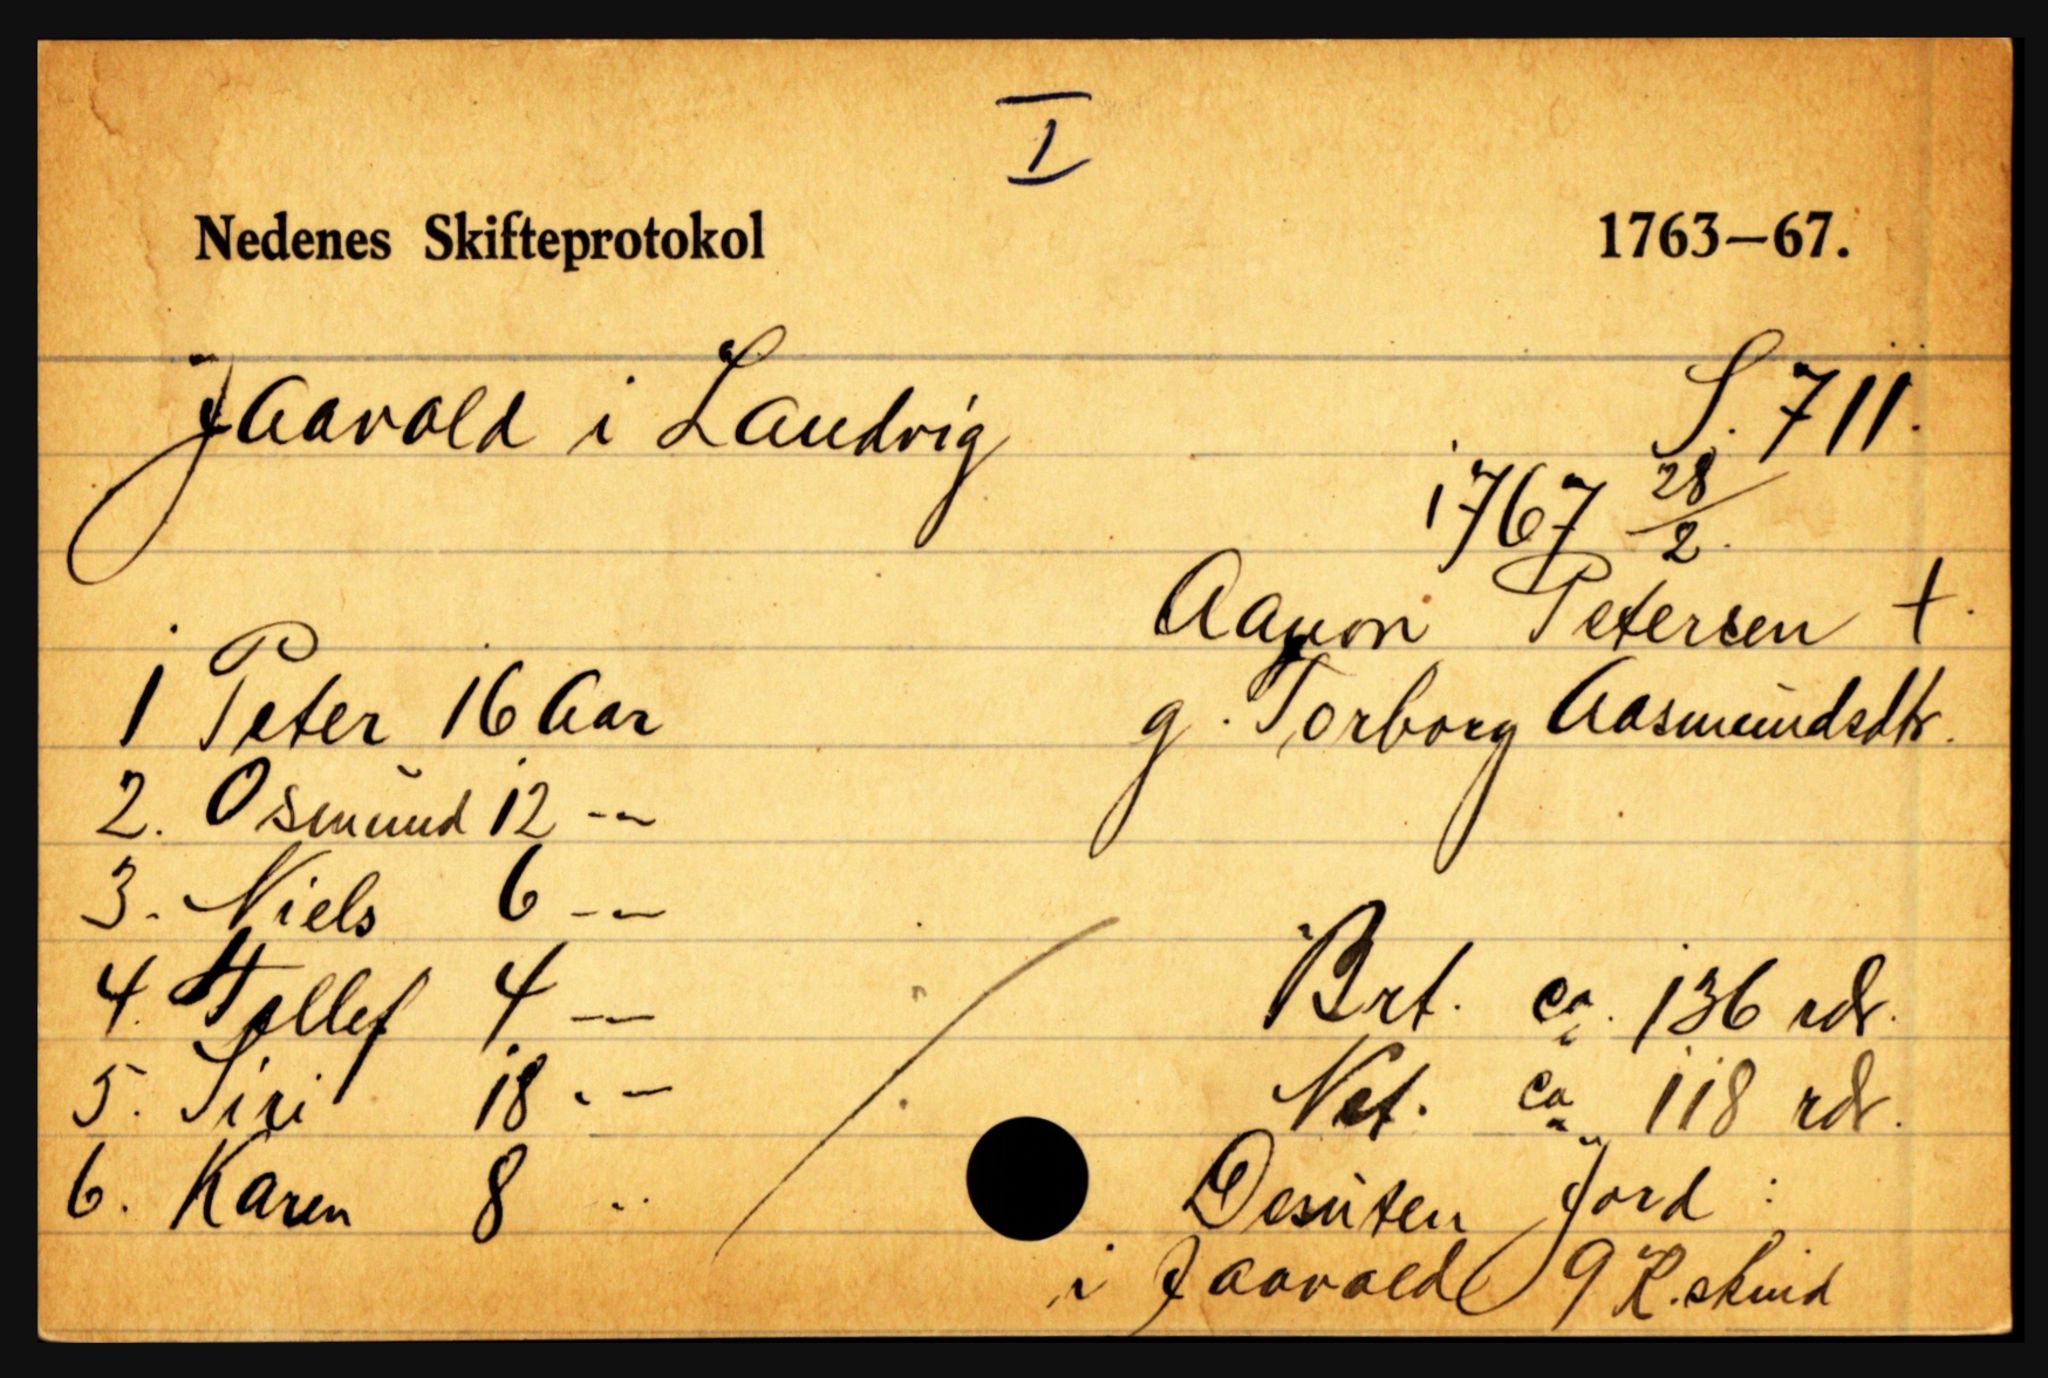 I
Nedenes Skifteprotokol 1763—67.
Jaavold i Landvig S. 711.
1767 28/2.
Aanon Petersen +.
g. Torborg Aasmundsdtr.
1 Peter 16 Aar
2. Osmund 12 --
3. Niels 6 --
4. Tellef 4 --
5. Siri 18 --
6. Karen 8 ..
Brt. ca. 136 rdr.
Net. ca 118 rdr.
Desuten Jord :
i Jaavold 9 K.skind